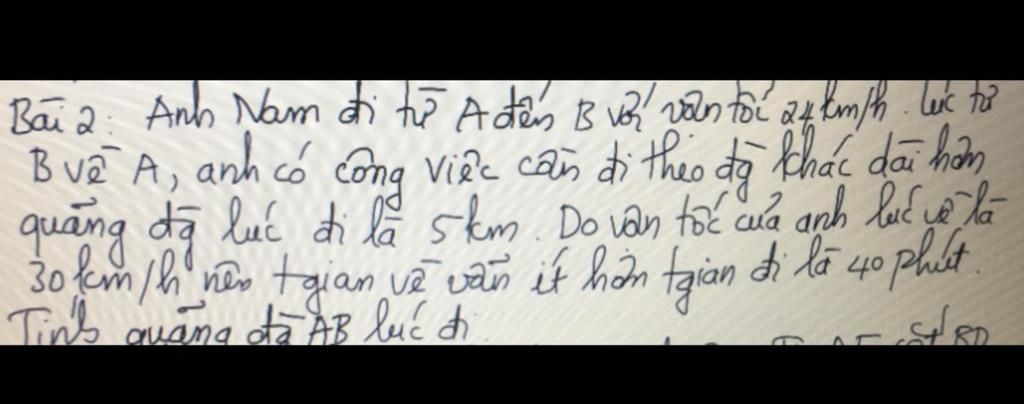 Bài 2: Anh Nam đi từ A đến B với vận tốc 24 km/h. lúc từ
B về A, anh có công việc cần đi theo đg khác dài hơn
quãng đg lúc đi là 5km. Do vận tốc của anh lúc về là
30 km/h nên tgian về vẫn ít hơn tgian đi là 40 phút.
Tính quãng đg AB lúc đi.
cắt BD